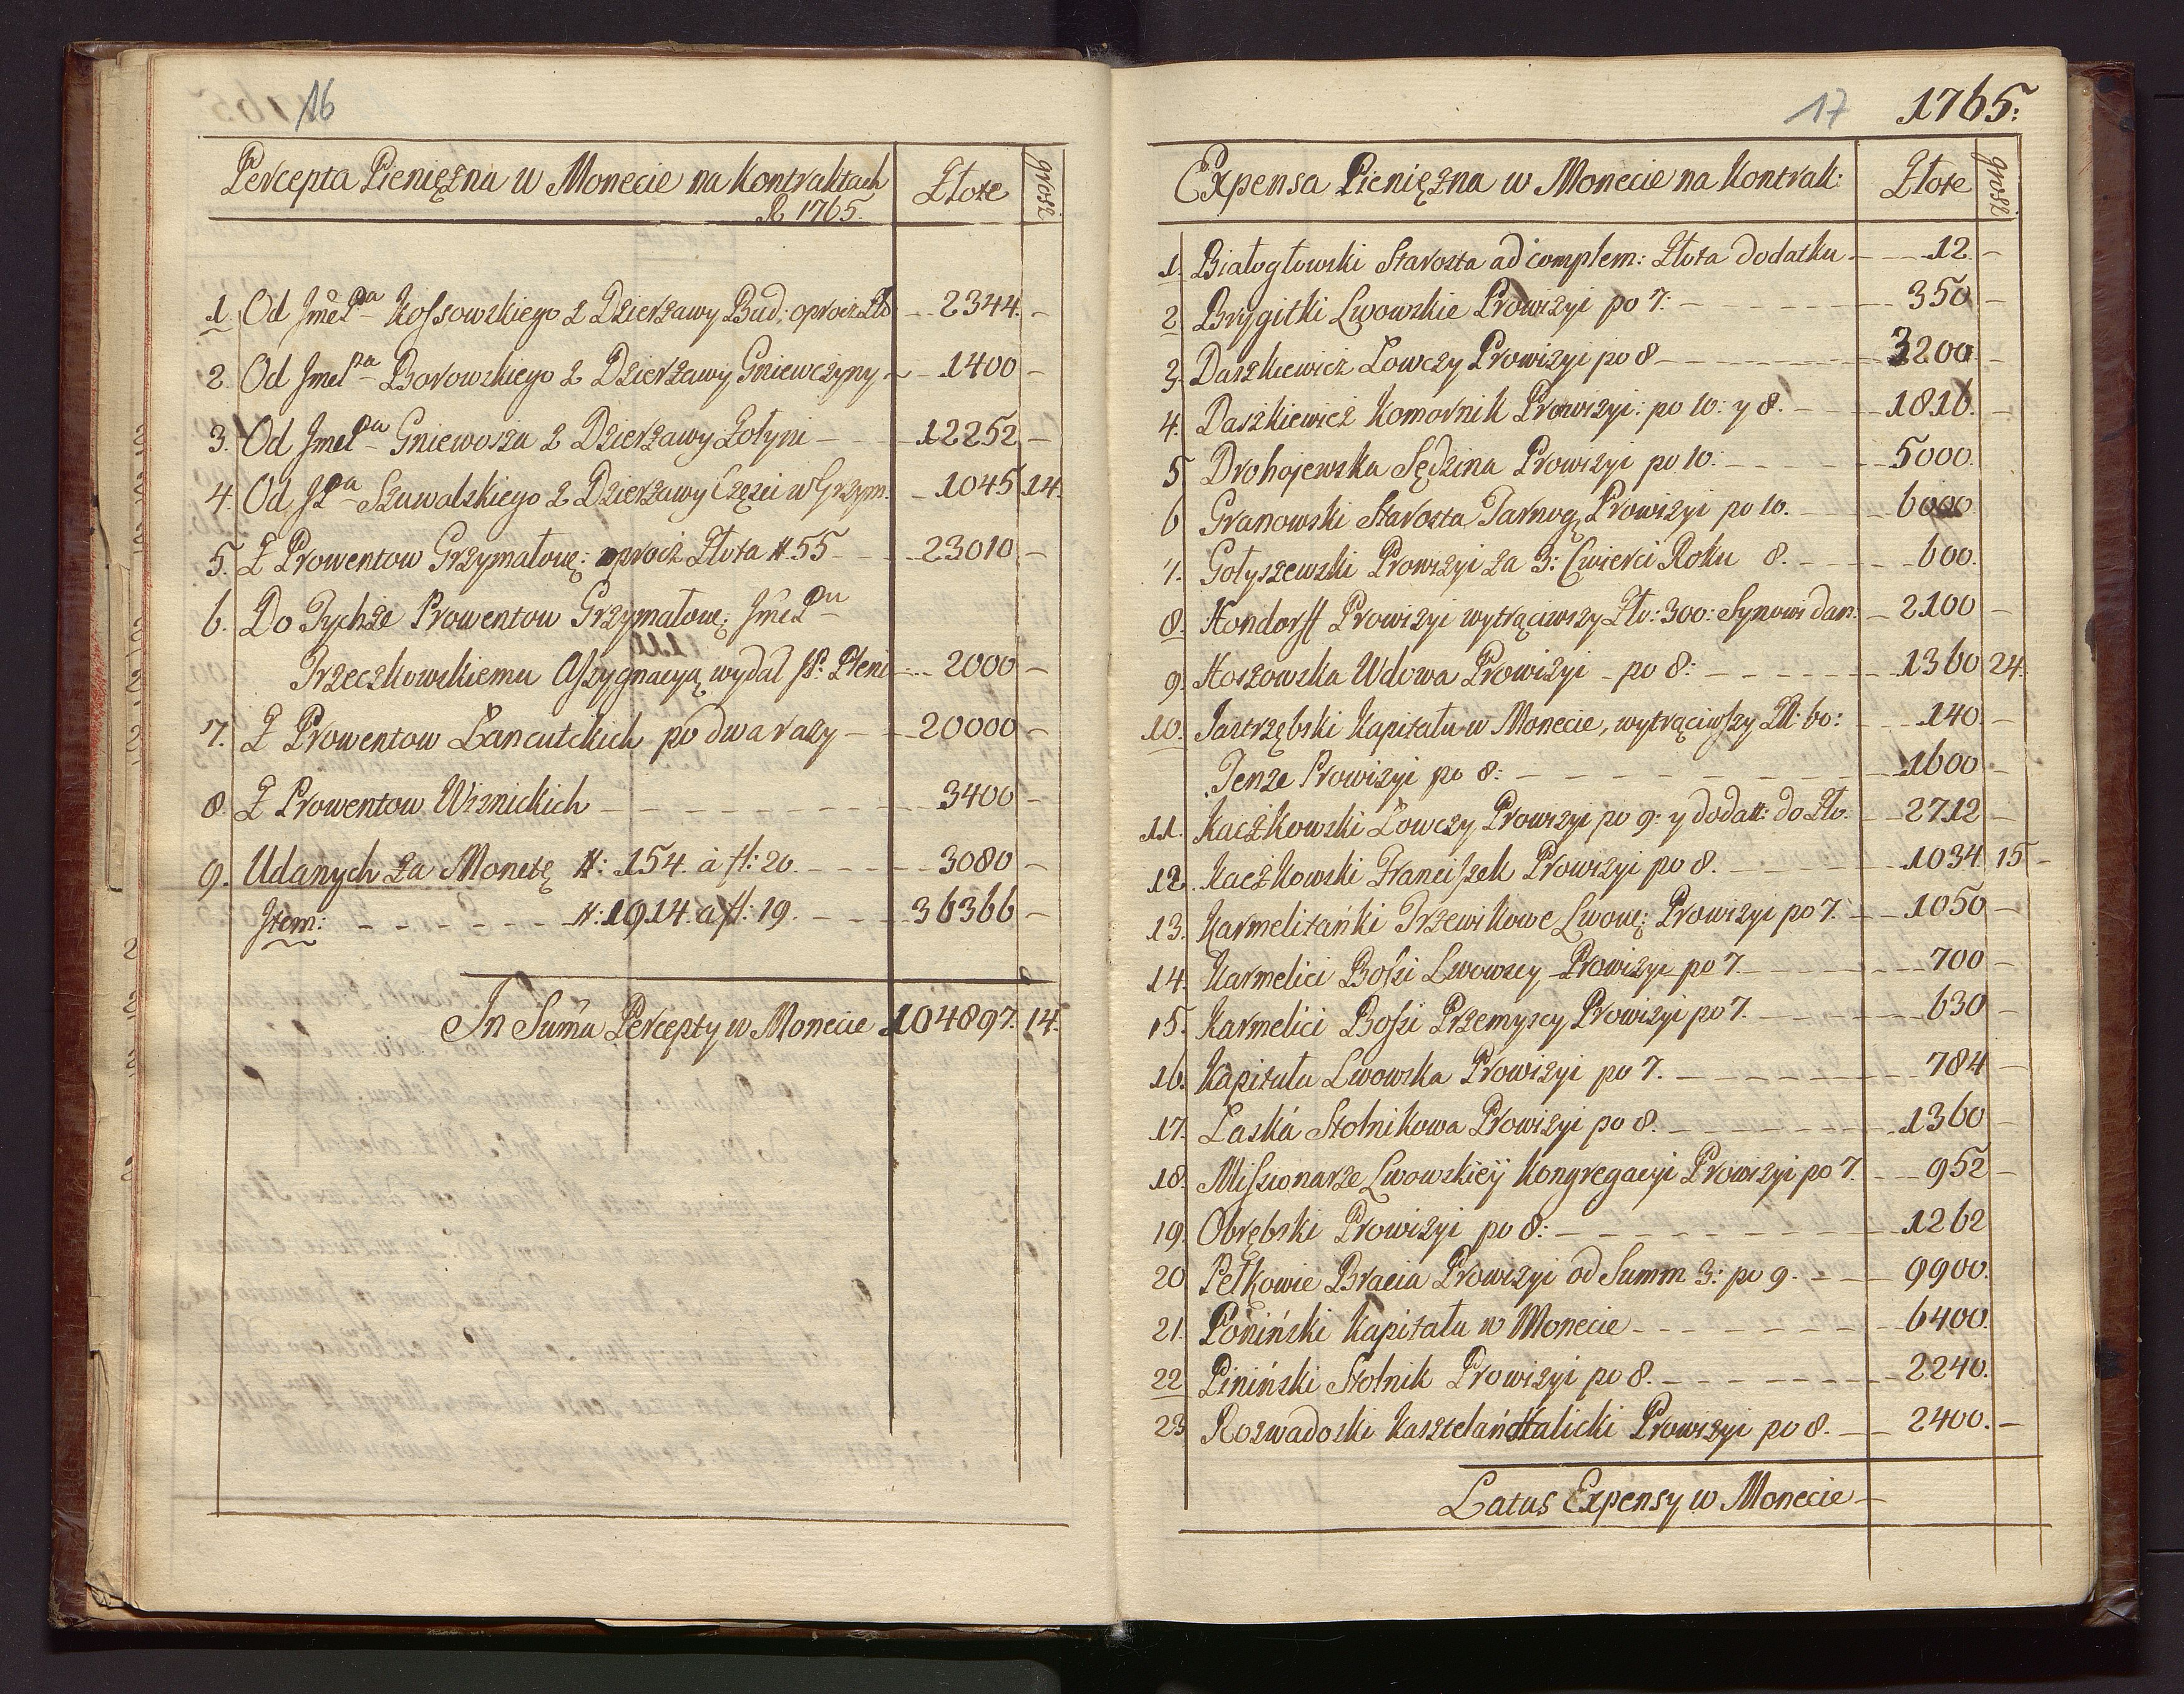 16
Percepta Pieniężna w Monecie na Kontraktach Złote grosz
R 1765.
1. Od JmćPa Kossowskiego z Dzierżawy Bud: oprocz Zło 2344. -
2. Od JmćPa Borowskiego z Dzierżawy Gniewczyny 1400 -
3. Od JmćPa Gniewosza z Dzierżawy Żołyni 12252 -
4. Od JPa Szuwalskiego z Dzierżawy Częsci w Grzym. 1045 14.
5. Z Prowentow Grzymałow: oprocz Złota #55 23010 -
6. Do Tychże Prowentow Grzymałow: JmćPu
Trzeczkowskiemu Assygnacyą wydał 2000 -
7. Z Prowentow Łancutckich po dwa razy 20000 -
8. Z Prowentow Wisnickich 3400 -
9. Udanych za Monetę #: 154. à fl: 20. 3080 -
Item: #: 1914. à fl: 19. 36366 -
In Suma Percepty w Monecie 104897. 14.
17 1765:
Expensa Pieniężna w Monecie na Kontrak: Złote grosz
1. Białogłowski Starosta ad complem: Złota dodatku 12. -
2. Brygitki Lwowskie Prowizyi po 7: 350 -
3. Daszkiewicz Łowczy Prowizyi po 8 3200 -
4. Daszkiewicz Komornik Prowizyi: po 10: y 8. 1816. -
5 Drohojewska Sędzina Prowizyi po 10: 5000.
6 Granowski Starosta Tarnog Prowizyi po 10. 6000
7. Gołyszewski Prowizyi za 3: Cwierci Roku 8. 600.
8. Hondorff Prowizyi wytrąciwszy Zło: 300: Synowi dan: 2100 -
9. Hoszowska Wdowa Prowizyi po 8: 1360 24.
10. Jastrzębski Kapitału w Monecie, wytrąciwszy Zł: 60: 140. -
Tenże Prowizyi po 8: 1600 -
11. Kaczkowski Łowczy Prowizyi po 9: y dodatt: do Zło. 2712 -
12. Kaczkowski Franciszek Prowizyi po 8. 1034. 15 -
13. Karmelitańki Trzewikowe Lwow: Prowizyi po 7. 1050 -
14. Karmelici Bossi Lwowscy Prowizyi po 7. 700 -
15. Karmelici Bossi Przemyscy Prowizyi po 7. 630 -
16. Kapituła Lwowska Prowizyi po 7. 784 -
17. Łaská Stolnikowa Prowizyi po 8. 1360 -
18. Missionarze Lwowskiey Kongregacyi Prowizyi po 7. 952 -
19. Obrębski Prowizyi po 8: 1262
20 Pełkowie Bracia Prowizyi od Summ 3: po 9. 9900.
21. Poniński Kapitału w Monecie 6400.
22 Piniński Stolnik Prowizyi po 8. 2240.
23 Rozwadoski Kasztelan Halicki Prowizyi po 8. 2400. -
Latus Expensy w Monecie